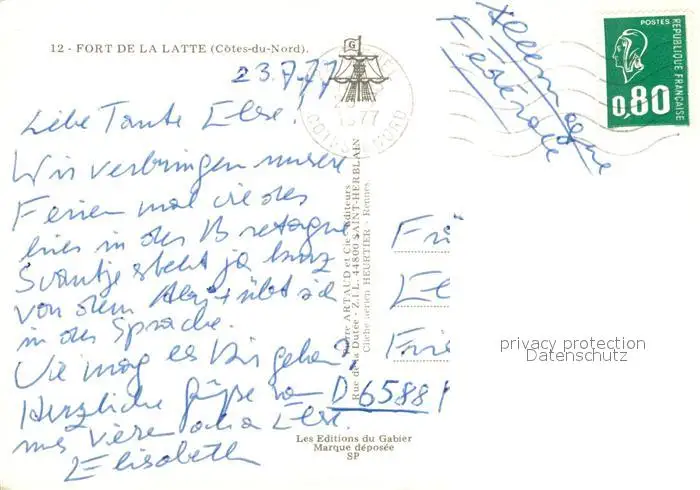 12 - FORT DE LA LATTE (Côtes-du-Nord).
23.7.77
Liebe Tante Else!
Wir verbringen unsere
Ferien mal wieder
in der Bretagne
Svantje steht ja kurz
vor dem Abi + übt sich
in der Sprache.
Wie mag es Dir gehen?
Herzliche Grüße von
uns Vieren, Deine Else
Elisabeth
G
1977
COTES DU NORD
Pierre ARTAUD et Cie, Editeurs
Rue de la Dutée - Z.I.L. 44800 SAINT-HERBLAIN
Cliché aérien HEURTIER - Rennes
Les Editions du Gabier
Marque déposée
SP
Allemagne
Fédérale
POSTES
REPUBLIQUE FRANÇAISE
0,80
Frä
El
Frie
D 6588
privacy protection
Datenschutz